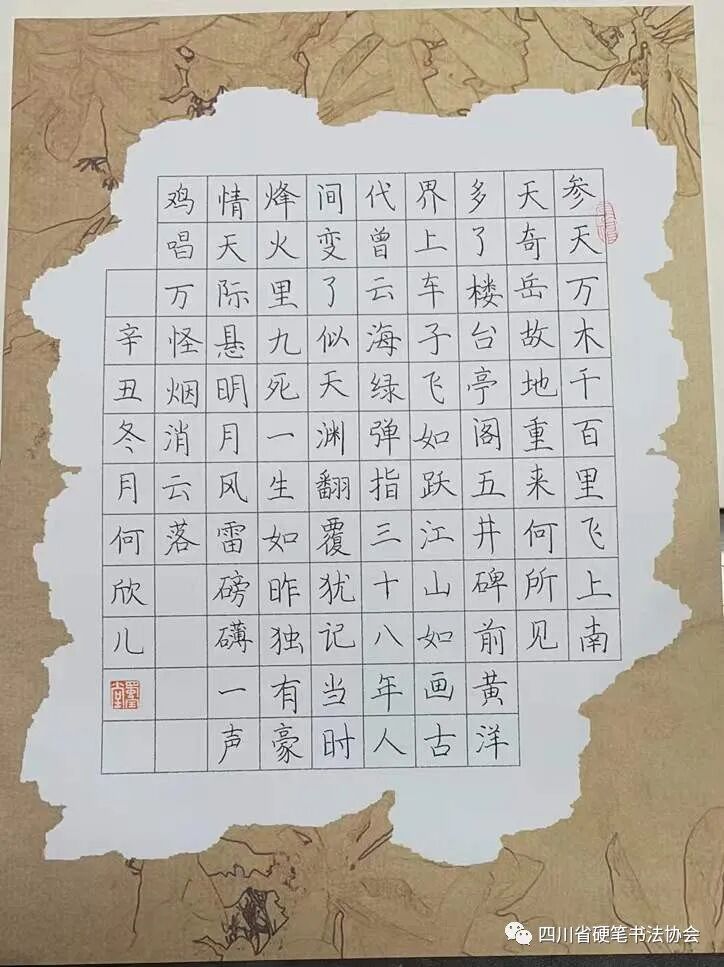 参天万木千百里飞上南
天奇岳故地重来何所见
多了楼台亭阁五井碑前黄洋
界上车子飞如跃江山如画古
代曾云海绿弹指三十八年人
间变了似天渊翻覆犹记当时
烽火里九死一生如昨独有豪
情天际悬明月风雷磅礴一声
鸡唱万怪烟消云落
辛丑冬月何欣儿
四川省硬笔书法协会